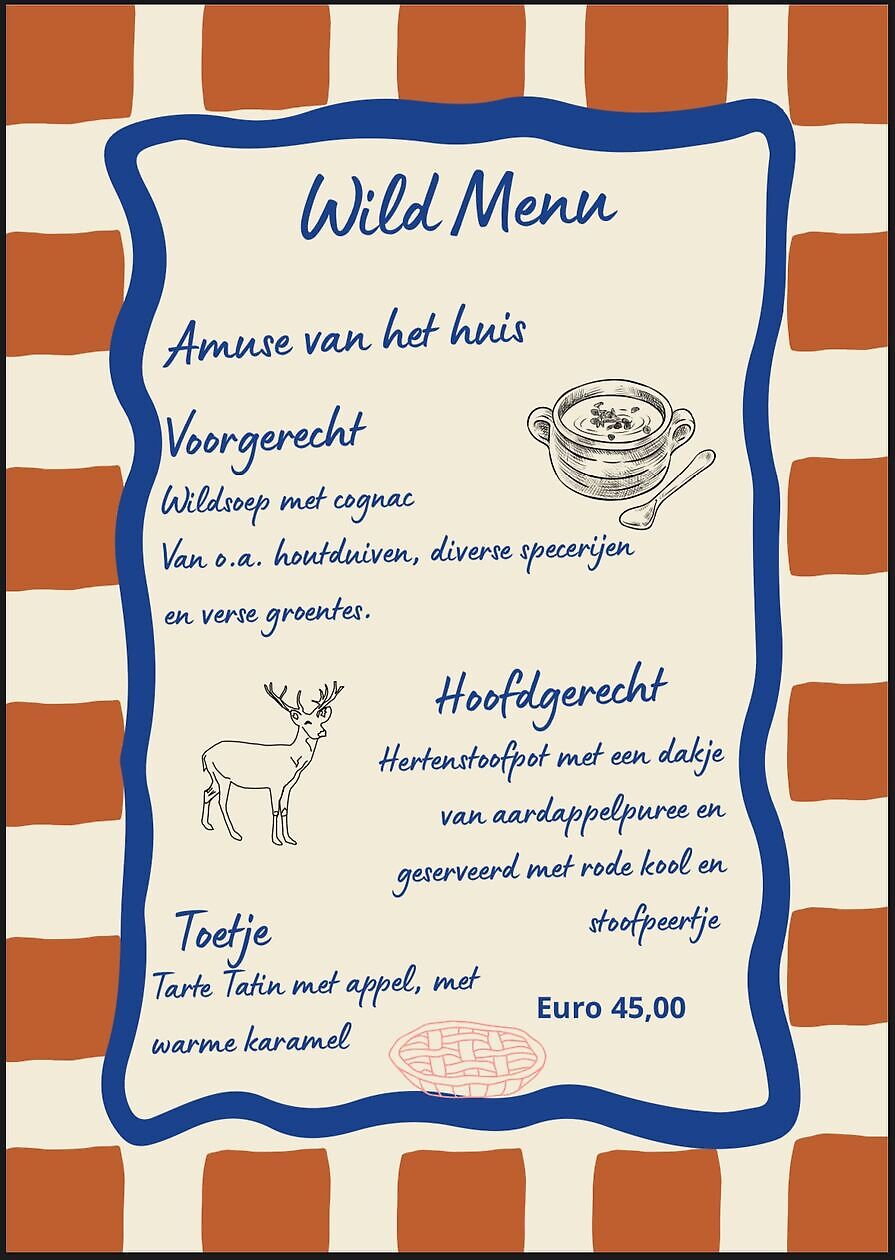 Wild Menu
Amuse van het huis
Voorgerecht
Wildsoep met cognac
Van o.a. houtduiven, diverse specerijen
en verse groentes.
Hoofdgerecht
Hertenstoofpot met een dakje
van aardappelpuree en
geserveerd met rode kool en
stoofpeertje
Toetje
Tarte Tatin met appel, met
warme karamel
Euro 45,00